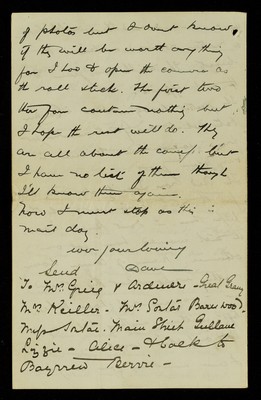 of photos but I dont know
if they will be worth anything
for I had to open the camera as
the roll sticks. The first two
contain nothing but
I hope the rest will do. They
are all about the camp but
I have no list of them though
I'll know them again.
Now I must stop as this is
mail day
ever your loving
Send Dave
To Mrs Greig & Ardmer - Great Grany
Mrs Keiller. Mrs Sortar Barnwood.
Miss Sortar. Main Street Gullane
Lizzie - Alice - & back to
Bayview Bervie -